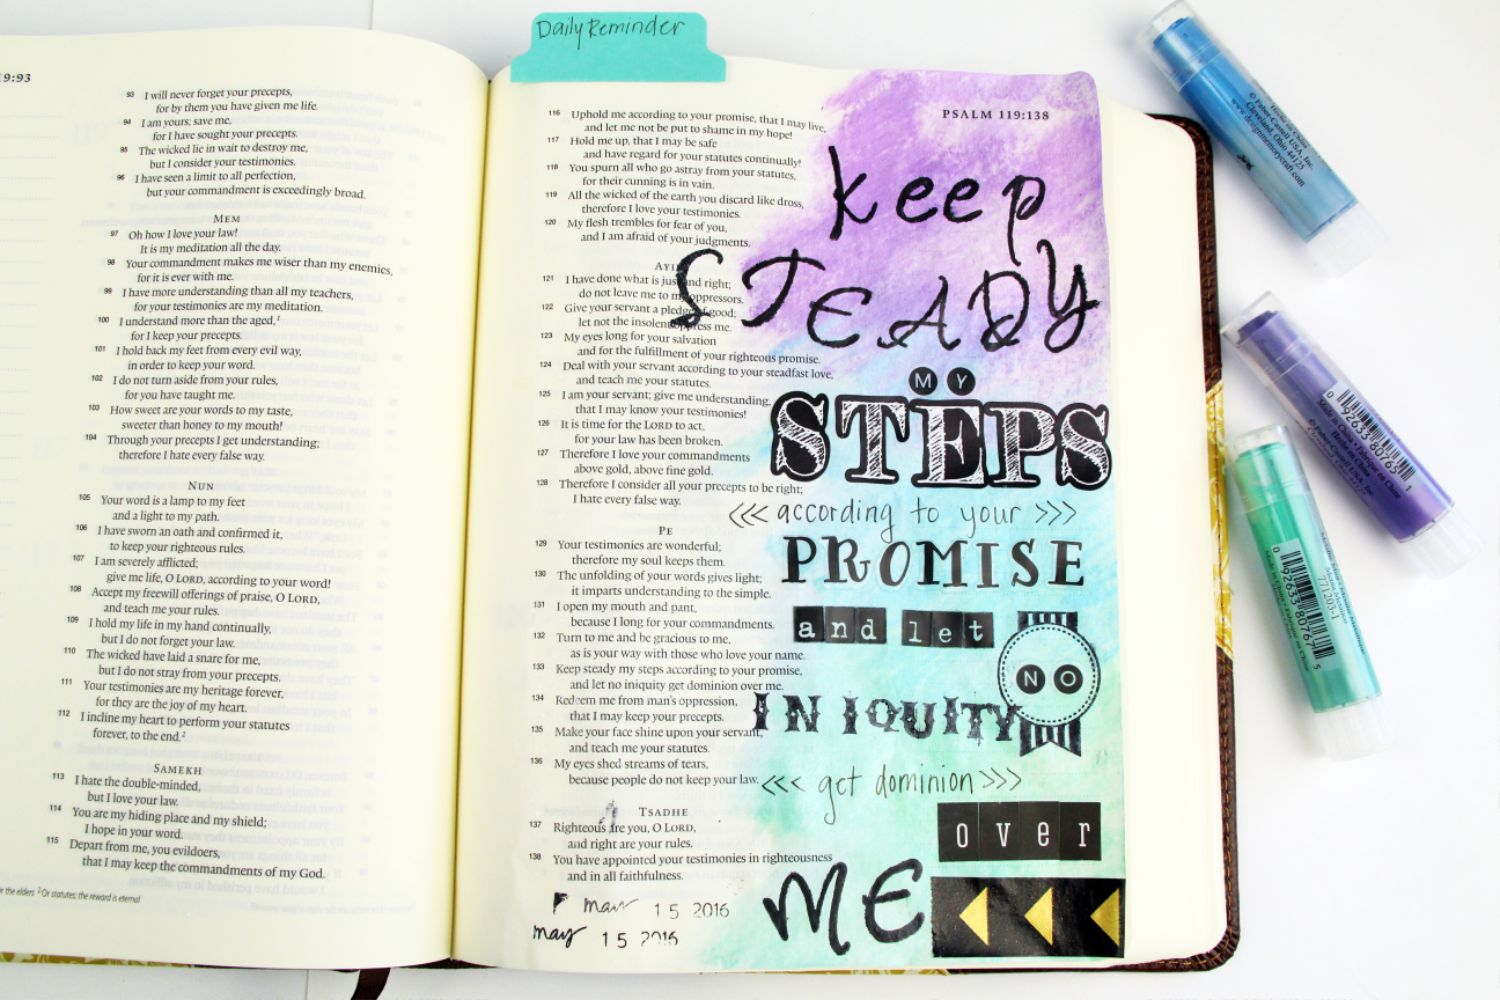 19:93
93 I will never forget your precepts,
for by them you have given me life.
94 I am yours; save me,
for I have sought your precepts.
95 The wicked lie in wait to destroy me,
but I consider your testimonies.
96 I have seen a limit to all perfection,
but your commandment is exceedingly broad.
MEM
97 Oh how I love your law!
It is my meditation all the day.
98 Your commandment makes me wiser than my enemies,
for it is ever with me.
99 I have more understanding than all my teachers,
for your testimonies are my meditation.
100 I understand more than the aged,1
for I keep your precepts.
101 I hold back my feet from every evil way,
in order to keep your word.
102 I do not turn aside from your rules,
for you have taught me.
103 How sweet are your words to my taste,
sweeter than honey to my mouth!
104 Through your precepts I get understanding;
therefore I hate every false way.
NUN
105 Your word is a lamp to my feet
and a light to my path.
106 I have sworn an oath and confirmed it,
to keep your righteous rules.
107 I am severely afflicted;
give me life, O LORD, according to your word!
108 Accept my freewill offerings of praise, O LORD,
and teach me your rules.
109 I hold my life in my hand continually,
but I do not forget your law.
110 The wicked have laid a snare for me,
but I do not stray from your precepts.
111 Your testimonies are my heritage forever,
for they are the joy of my heart.
112 I incline my heart to perform your statutes
forever, to the end.2
SAMEKH
113 I hate the double-minded,
but I love your law.
114 You are my hiding place and my shield;
I hope in your word.
115 Depart from me, you evildoers,
that I may keep the commandments of my God.
the elders 2 Or statutes; the reward is eternal
Daily Reminder
116 Uphold me according to your promise, that I may live,
and let me not be put to shame in my hope!
117 Hold me up, that I may be safe
and have regard for your statutes continually!
118 You spurn all who go astray from your statutes,
for their cunning is in vain.
119 All the wicked of the earth you discard like dross,
therefore I love your testimonies.
120 My flesh trembles for fear of you,
and I am afraid of your judgments.
121 I have done what is just and right;
do not leave me to my oppressors.
122 Give your servant a pledge of good;
let not the insolent oppress me.
123 My eyes long for your salvation
and for the fulfillment of your righteous promise.
124 Deal with your servant according to your steadfast love,
and teach me your statutes.
125 I am your servant; give me understanding,
that I may know your testimonies!
126 It is time for the LORD to act,
for your law has been broken.
127 Therefore I love your commandments
above gold, above fine gold.
128 Therefore I consider all your precepts to be right;
I hate every false way.
PE
129 Your testimonies are wonderful;
therefore my soul keeps them.
130 The unfolding of your words gives light;
it imparts understanding to the simple.
131 I open my mouth and pant,
because I long for your commandments.
132 Turn to me and be gracious to me,
as is your way with those who love your name.
133 Keep steady my steps according to your promise,
and let no iniquity get dominion over me.
134 Redeem me from man's oppression,
that I may keep your precepts.
135 Make your face shine upon your servant,
and teach me your statutes.
136 My eyes shed streams of tears,
because people do not keep your law.
TSADHE
137 Righteous are you, O LORD,
and right are your rules.
138 You have appointed your testimonies in righteousness
and in all faithfulness.
may 15 2016
may 15 2016
PSALM 119:138
keep
STEADY
MY
STEPS
<<< according to your >>>
PROMISE
and let
NO
INIQUITY
<<< get dominion >>>
over
ME
© Faber-Castell USA, Inc.
Cleveland, Ohio 44125
www.designmemorycraft.com
0 92633 80765 1
771203-1
0 92633 80767 5